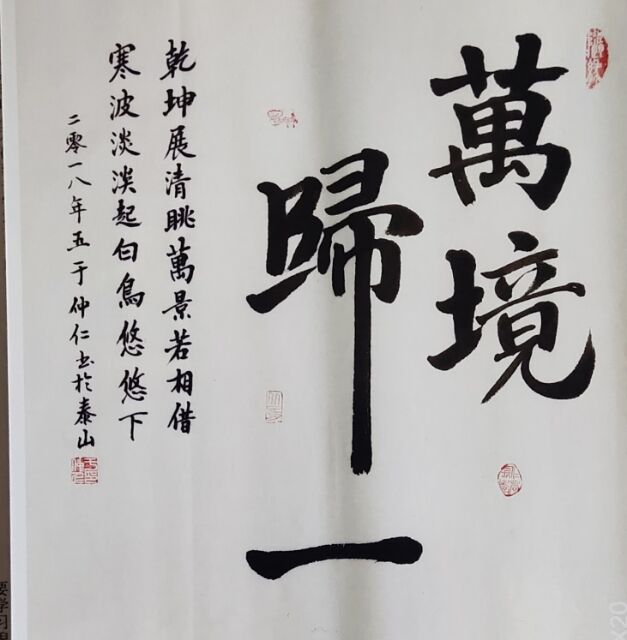 萬境
歸
一
乾坤展清眺萬景若相借
寒波淡淡起白鳥悠悠下
二零一八年五于仲仁书於泰山
要学习